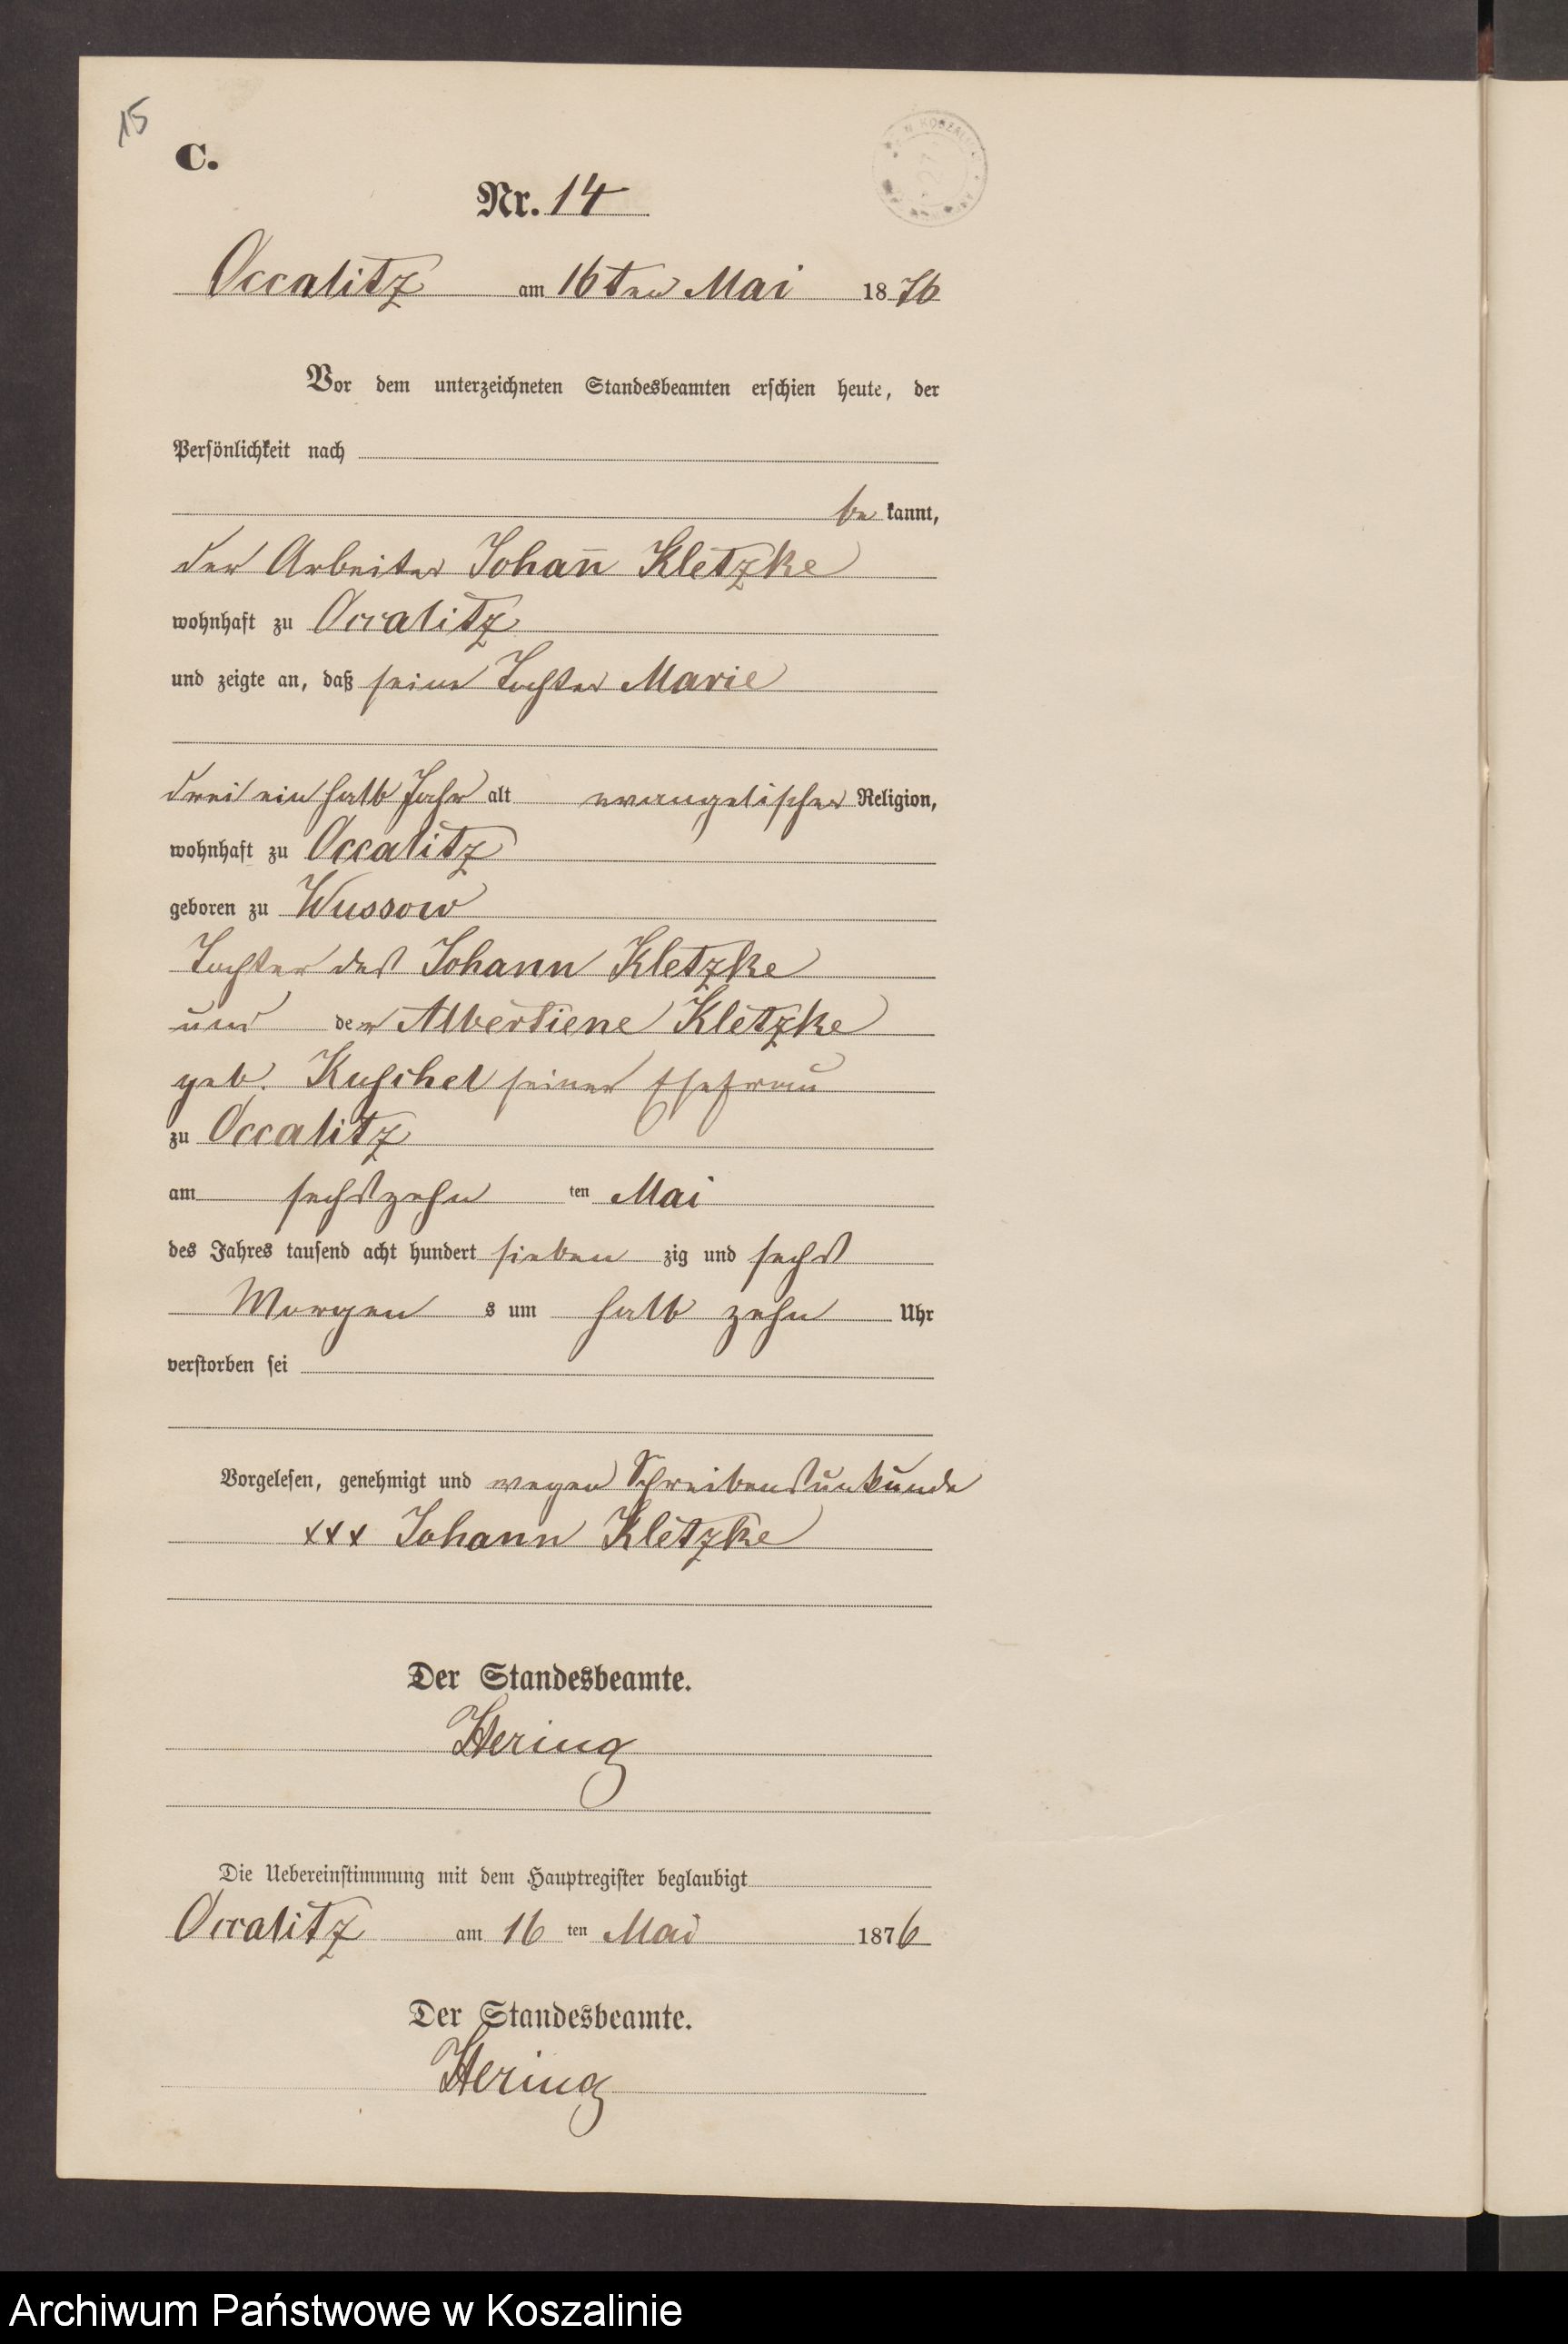 15
C.
Nr. 14
Occalitz am 16ten Mai 1876
Vor dem unterzeichneten Standesbeamten erschien heute, der
Persönlichkeit nach
be kannt,
der Arbeiter Johan̄ Kletzke
wohnhaft zu Occalitz
und zeigte an, daß seine Tochter Marie
drei ein halb Jahr alt evangelischer Religion,
wohnhaft zu Occalitz
geboren zu Wussow
Tochter des Johann Kletzke
und der Albertiene Kletzke
geb. Kuschel seiner Ehefrau
zu Occalitz
am sechszehn ten Mai
des Jahres tausend acht hundert sieben zig und sechs
Morgen s um halb zehn Uhr
verstorben sei
Vorgelesen, genehmigt und wegen Schreibensunkunde
xxx Johann Kletzke
Der Standesbeamte.
Hering
Die Uebereinstimmung mit dem Hauptregister beglaubigt
Occalitz am 16 ten Mai 1876
Der Standesbeamte.
Hering
Archiwum Państwowe w Koszalinie